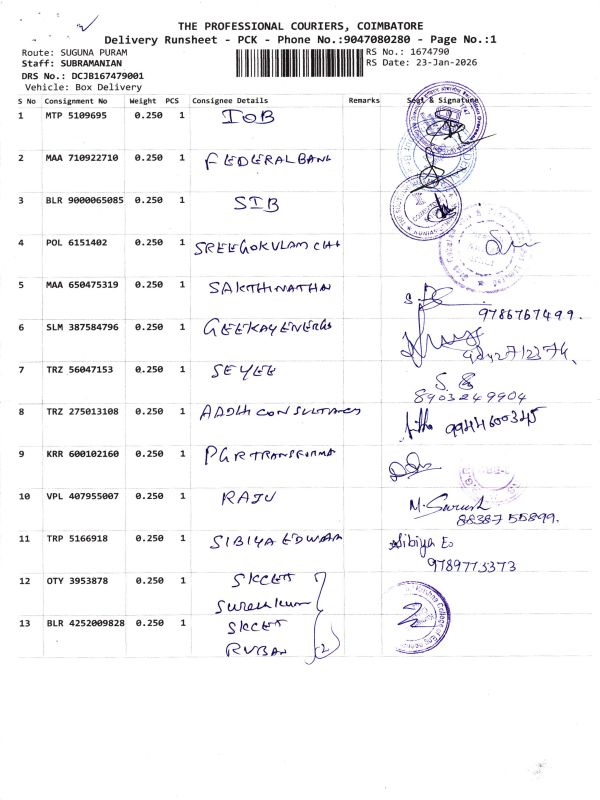 THE PROFESSIONAL COURIERS, COIMBATORE
Delivery Runsheet - PCK - Phone No.:9047080280 - Page No.:1
Route: SUGUNA PURAM
RS No.: 1674790
Staff: SUBRAMANIAN
RS Date: 23-Jan-2026
DRS No.: DCJB167479001
Vehicle: Box Delivery
S No Consignment No Weight PCS Consignee Details Remarks Seal & Signature
1 MTP 5109695 0.250 1 IOB
2 MAA 710922710 0.250 1 FEDERAL BANK
3 BLR 9000065085 0.250 1 SIB
4 POL 6151402 0.250 1 SREEGOKULAM CHI
5 MAA 650475319 0.250 1 SAKTHINATHAN
9786767499.
6 SLM 387584796 0.250 1 GEEKAY ENERGY
7 TRZ 56047153 0.250 1 SEYEE
8903249904
8 TRZ 275013108 0.250 1 ADDHI CONSULTANCS
9944600345
9 KRR 600102160 0.250 1 PGR TRANSFORMA
10 VPL 407955007 0.250 1 RAJU
M. Suresh
88387 55899.
11 TRP 5166918 0.250 1 SIBIYA EDWAR
Sibiya E.
9789775373
12 OTY 3953878 0.250 1 SKCET
Sureshkum
13 BLR 4252009828 0.250 1 SKCET
RUBAN (2)